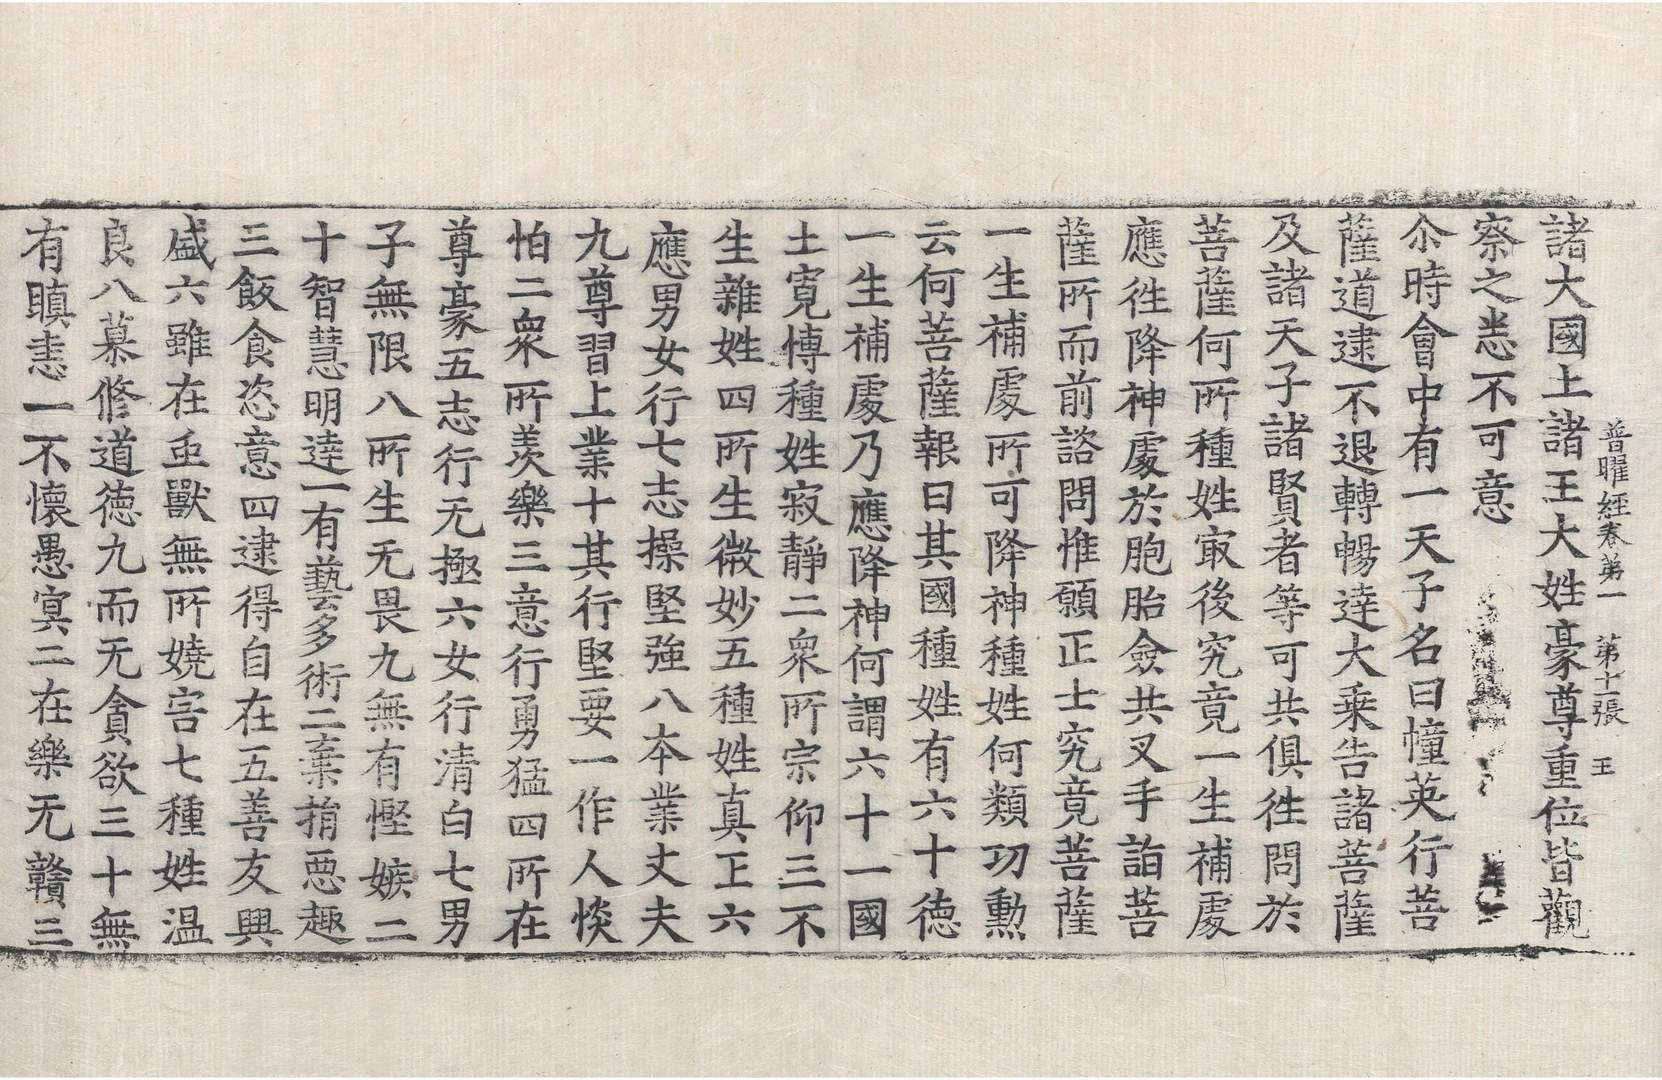 普曜經卷第一 第十一張 王
諸大國土諸王大姓豪尊重位皆觀
察之悉不可意
尒時會中有一天子名曰幢英行菩
薩道逮不退轉暢達大乗告諸菩薩
及諸天子諸賢者等可共俱徃問於
菩薩何所種姓㝡後究竟一生補處
應徃降神處於胞胎僉共叉手詣菩
薩所而前諮問惟願正士究竟菩薩
一生補處所可降神種姓何類功勳
云何菩薩報曰其國種姓有六十德
一生補處乃應降神何謂六十一國
土寬愽種姓寂靜二衆所宗仰三不
生雜姓四所生微妙五種姓真正六
應男女行七志操堅強八本業丈夫
九尊習上業十其行堅要一作人惔
怕二衆所羨樂三意行勇猛四所在
尊豪五志行无極六女行清白七男
子無限八所生无畏九無有慳嫉二
十智慧明達一有藝多術二棄捐惡趣
三飯食恣意四逮得自在五善友興
盛六雖在重獸無所嬈害七種姓温
良八慕修道德九而无貪欲三十無
有瞋恚一不懷愚冥二在樂无㱦三